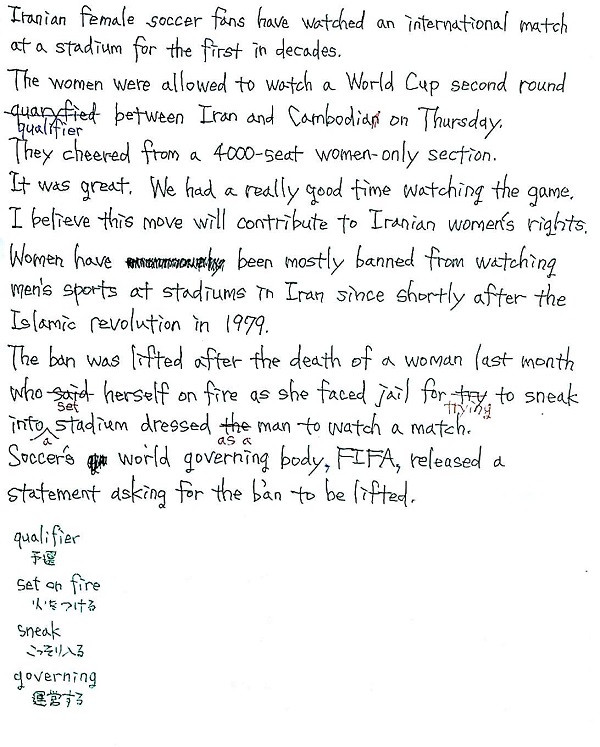 Iranian female soccer fans have watched an international match
at a stadium for the first in decades.
The women were allowed to watch a World Cup second round
quaryfied between Iran and Cambodian on Thursday.
qualifier
They cheered from a 4000-seat women-only section.
It was great. We had a really good time watching the game.
I believe this move will contribute to Iranian women's rights.
Women have been mostly banned from watching
men's sports at stadiums in Iran since shortly after the
Islamic revolution in 1979.
The ban was lifted after the death of a woman last month
who said herself on fire as she faced jail for try to sneak
set trying
into stadium dressed the man to watch a match.
a as a
Soccer's world governing body, FIFA, released a
statement asking for the ban to be lifted.
qualifier
予選
set on fire
火をつける
sneak
こっそり入る
governing
運営する